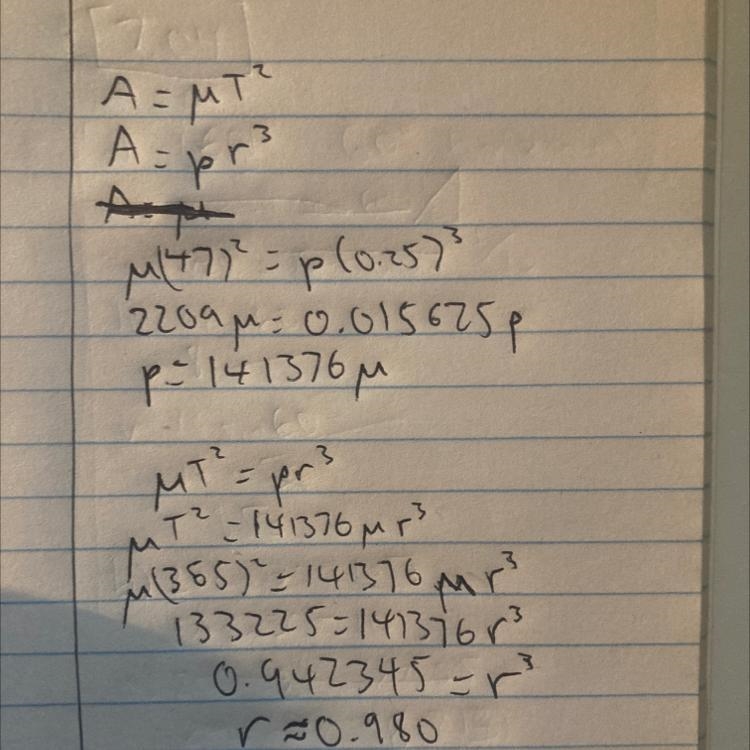 A = μT²
A = pr³
μ(47)² = p(0.25)³
2209μ = 0.015625p
p = 141376μ
μT² = pr³
μT² = 141376μr³
μ(365)² = 141376μr³
133225 = 141376r³
0.942345 = r³
r ≈ 0.980